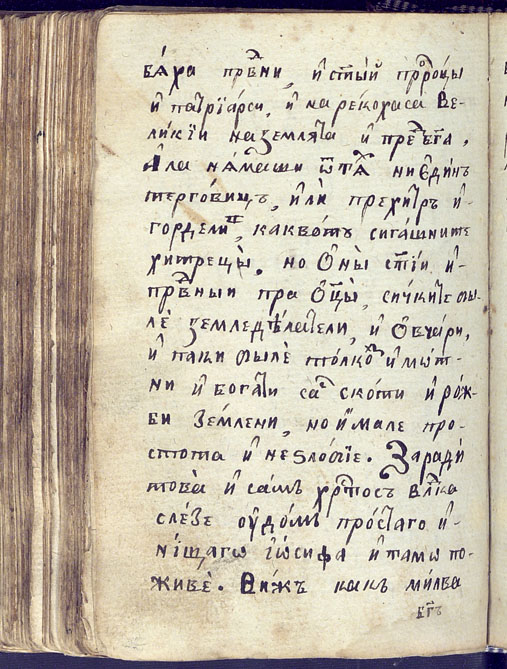 бѧха првⷣни, и ст҃ыи прⷪроцы
и патрїарси, и нарекохасѧ ве-
ликїи на землѧта и преⷣ бг҃а,
Ала нѧмаши ѿ тѧⷯ ни единъ
терговицъ, или прехитръ и-
горделиⷡ, каквото сигашните
хитреци. но оныѧ ст҃іи и-
првⷣныи праѻц҃ы, сичките бы-
ле земледѣлатели, и ѻвчари,
и паки быле толкоⷡ имот-
ни и богати саⷭ скоти и рож-
би землени, но имале про-
стота и неѕлобїе. Заради
това и самъ хрⷭтосъ влⷣка
слезе у домъ простаго и-
нищаго іѡсифа и тамо по-
живе. Вижъ какъ милва
бг҃ъ